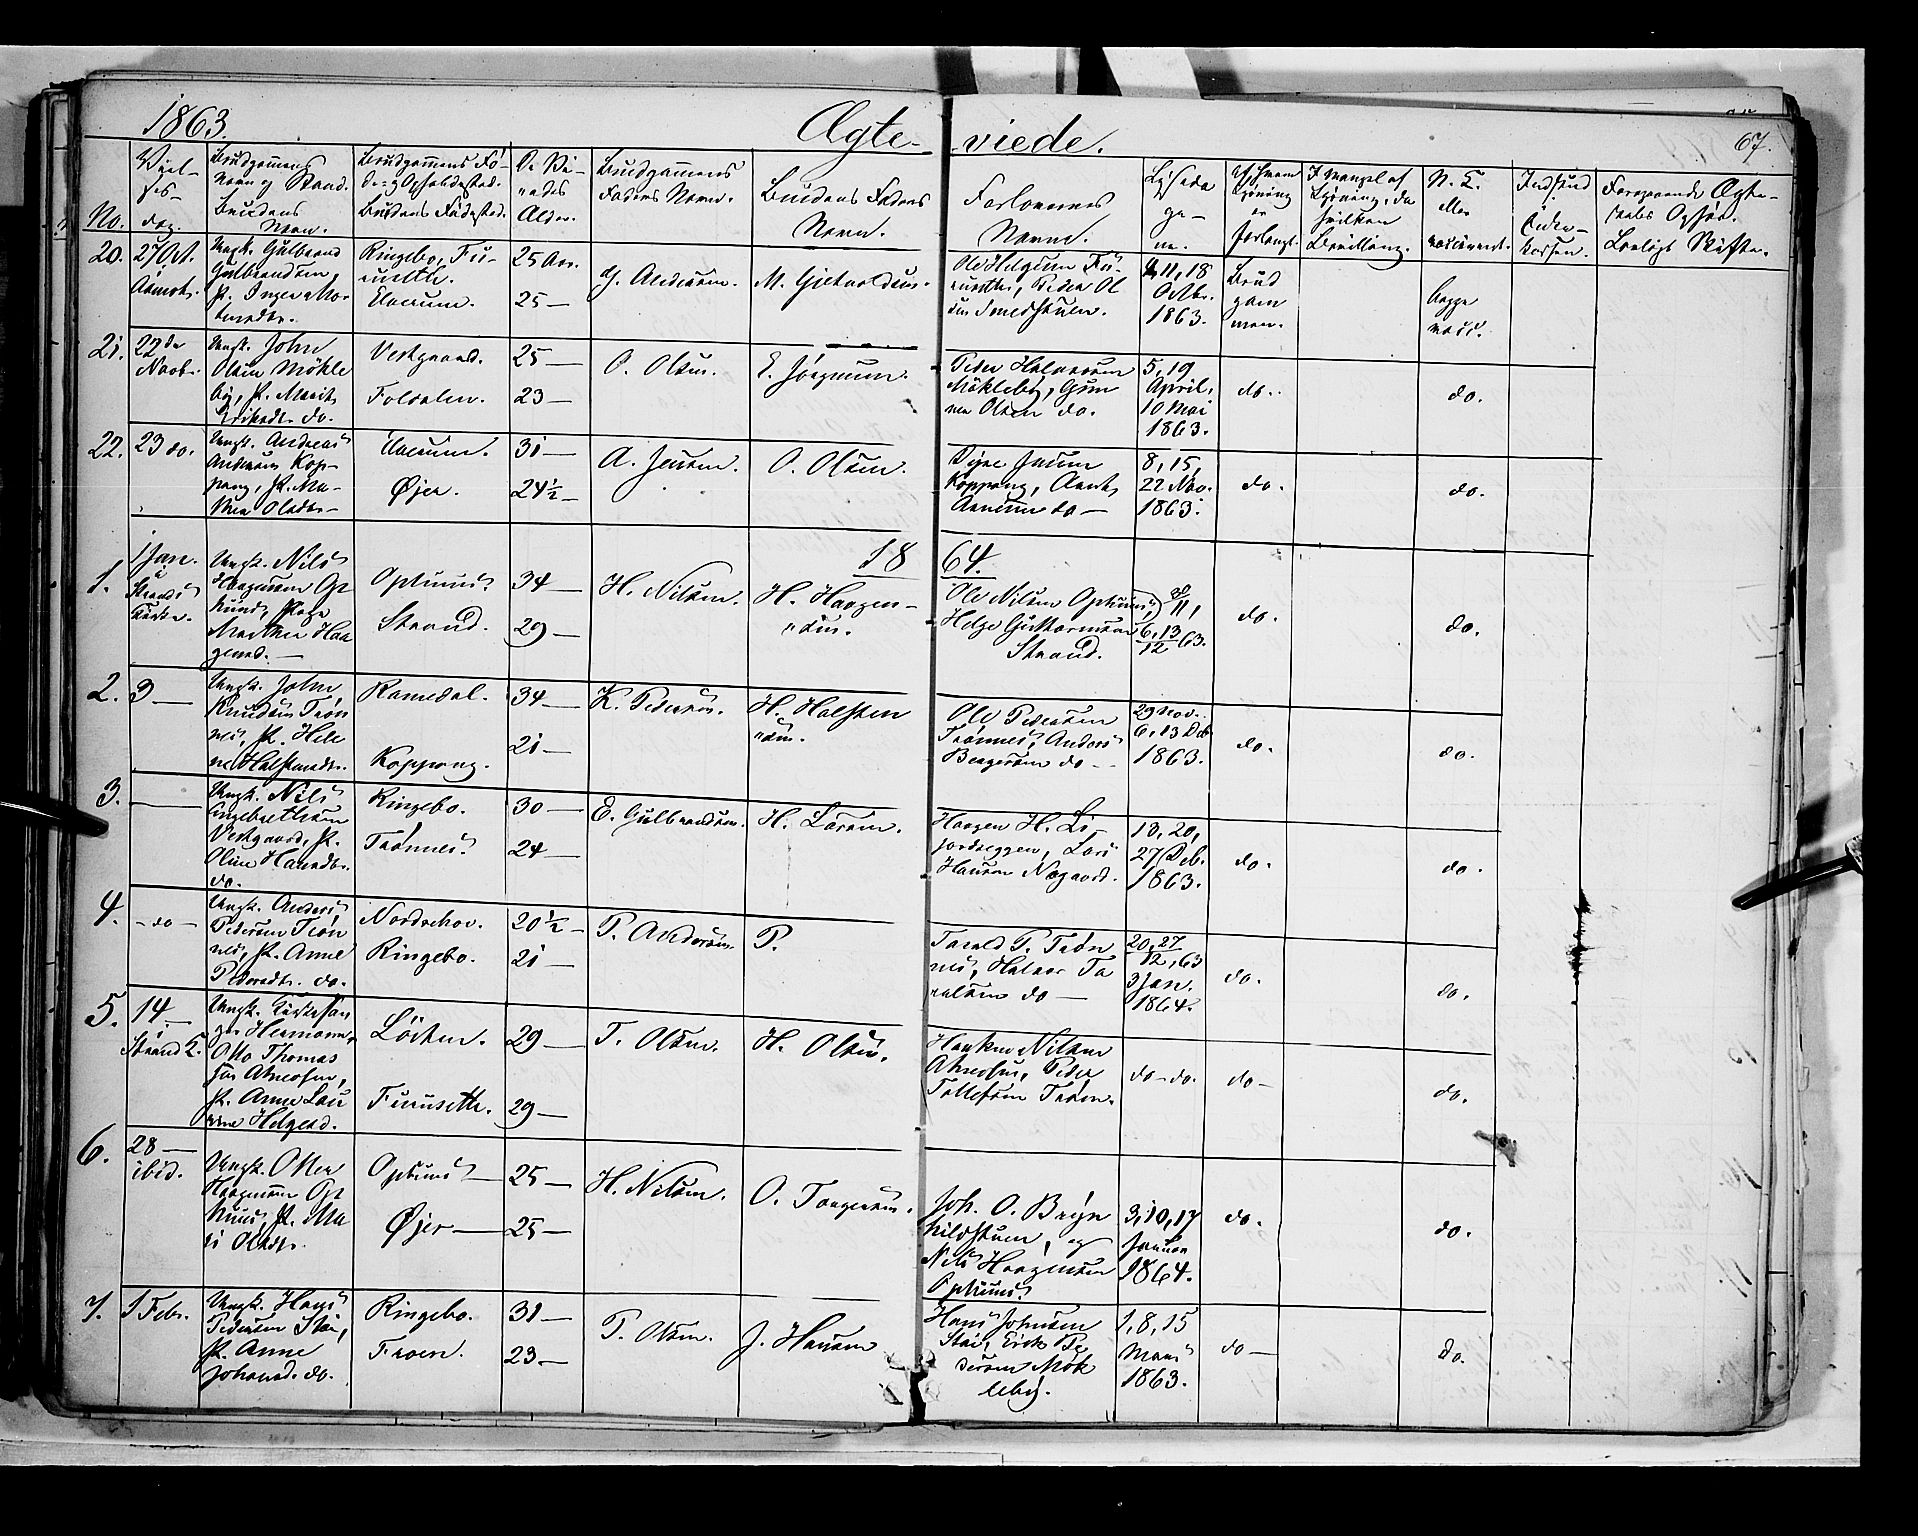 1863.
Ægte- viede.
67.
No.
Viel-
ses-
dag.
Brudgommens
Navn og Stand.
Brudens
Navn.
Brudgommens Fö-
de- og Opholdssted.
Brudens Fødested.
De Vi-
edes
Alder.
Brudgommens
Faders Navn.
Brudens Faders
Navn.
Forlovernes
Navne.
Lyseda
ge-
ne.
I Mangel af
Lysning, da
hvilken
Bevilling.
N. C.
eller
vaccineret.
Foregaaende Ægte-
skabs Ophör.
Lovligt Skifte.
20.
27 Oct.
Aamot.
Ungk. Gulbrand
Gulbrandsen,
P. Inger Mo-
Ringebo, Fu-
rusetth.
Elverum.
25 Aar.
25 —
G. Andersen.
M. Gjetvoldsen.
Ole Helgesen Fu-
rusetth, Peder Ol
sen Smedstuen.
4, 11, 18
Octbr.
1863.
Brud
gom
men.
begge
vacc.
21.
22de
Novbr.
Ungk. John
Olsen Mökle
by, P. Marit
Eriksdtr. do.
Vestgaard.
Foldalen.
25 —
23 —
O. Olsen.
E. Jörgensen.
Peder Halvorsen
Mökleby, Gun
ner Olsen do.
5, 19
April,
10 Mai
1863.
do.
do.
22.
23 do.
Ungk. Andreas
Andersen Kop-
pang, P. Ma-
thea Olsdtr. —
Elverum.
Øjer.
31 —
24½ —
A. Jensen.
O. Olsen.
Koppang, Arnt
Arnesen do —
8, 15,
22 Nov.
1863.
do.
do.
1864.
1.
1 Jan.
i
Strands
Kirke.
Ungk. Nils
Haagensen Op
huus, Pige
Marthea Haa
gensd. —
Ophuus
Strand.
34 —
29 —
H. Nilsen.
H. Haagen-
sen.
Ole Nilsen Ophuus,
Helge Guttormsen
Strand.
29/11,
6, 13/12 63.
do.
do.
2.
3 —
Ungk. John
Knudsen Trön
nes, P. Hele
ne Halstensdtr.
Romedal.
Koppang.
34 —
21 —
K. Pedersen.
H. Halsten
sen.
Ole Pedersen
Trönnes, Anders
Bergersen do —
29 Nov.
6, 13 Deb
1863.
do.
do.
3.
—
Ungk. Nils
Engebrethsen
Vestgaard, P.
Oline Hansdtr.
do.
Ringebo.
Trønnes.
30 —
24 —
E. Gulbrandsen.
H. Larsen.
Haagen H. Li-
jordseggen, Lars
Hansen Nygaard.
13, 20,
27 Deb.
1863.
do.
do.
4.
— do —
Ungk. Anders
Pedersen Trön
nes, P. Anne
Pedersdtr. do.
Nordrehov.
Ringebo.
20½ —
21 —
P. Andersen.
P.
Tarald P. Trön
nes, Halvor Ta
raldsen do —
20, 27/12, 63
3 Jan.
1864.
do.
do.
5.
14 —
Strand K.
Ungk. Kirkesan
ger Hermann
Otto Thomas
P. Anne Lou
ise Helgesd.
Löiten.
Furusetth.
29 —
29 —
T. Olsen.
H. Olsen.
Haaken Nilsen
Peder
Tollefsen Trøen.
do — do.
do —
do.
6.
28 —
ibid.
Ungk. Otter
Haagensen Op
huus, P. Ma
ri Olsdtr.
Ophuus —
Øjer —
25 —
25 —
H. Nilsen.
O. Torgersen.
Joh. O. Bryn
hildstuen, og
Nils Haagensen
Ophuus.
3, 10, 17
Januar
1864.
do.
do.
7.
5 Febr.
Ungk. Hans
Pedersen Stai,
P. Anne
Johansd. do.
Ringebo.
Froen.
31 —
23 —
P. Olsen.
J. Hansen
Hans Johnsen
Stai, Erik Pe
dersen Mök
leby.
1, 8, 15
Marts
1863.
do —
do.